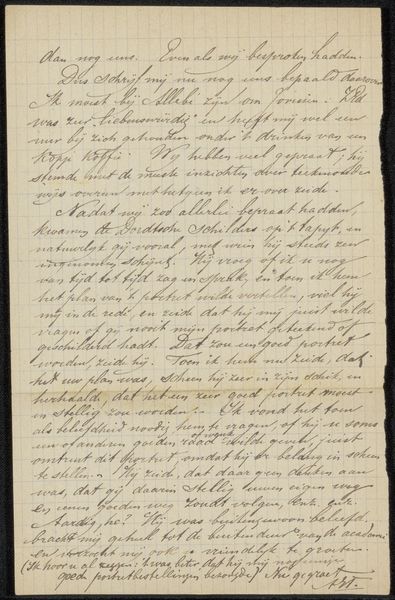 dan nog uns. Even als wij besproken hadden.
Dus schrijf mij nu nog uns bepaald daarover
Ik moest bij Allebé zijn om Zijd
was zeer liefenswürdig en heeft mij wel een
uur bij zich gehouden onder 't drinken van een
Kopje Koffie. Wij hebben veel gepraat; hij
stemde met de meeste inzichten over teekenonder-
wijs overeen met hetgeen ik er over zeide.
Nadat wij zoo allerlei bepraat hadden,
kwamen de Dordtsche Schilders op 't tapijt, en
natuurlijk gij vooral, met wien hij steeds zeer
ingenomen schijnt. Hij vroeg of ik u nog
van tijd tot tijd zag en sprak, en toen ik hem
het plan van 't portret wilde vertellen, viel hij
mij in de rede, en zeide dat hij mij juist wilde
vragen of gij nooit mijn portret geteekend of
geschilderd hadt. Dat zou een goed portret
worden, zeide hij. Toen ik hem nu zeide, dat
het uw plan was, scheen hij zeer in zijn schik, en
herhaalde, dat het een zeer goed portret moest
en stellig zou worden. Ik vond het toen
als beleefdheid noodig hem te vragen, of hij u soms
een of anderen goeden raad of wenk wilde geven, juist
omtrent dit portret, omdat hij er belang in scheen
te stellen. Hij zeide, dat daar geen denken aan
was, dat gij daarin stellig uwen eigen weg
en eenen goeden weg zoudt volgen, enz. enz.
Aardig, hè? Hij was buitengewoon beleefd.
bracht mij geheel tot de buitendeur van de academie
en verzocht mij ook u vriendelijk te groeten.
(Ik hoor u al zeggen: 't was beter dat hij mij
goede portretbestellingen bezorgde) Nu gegroet